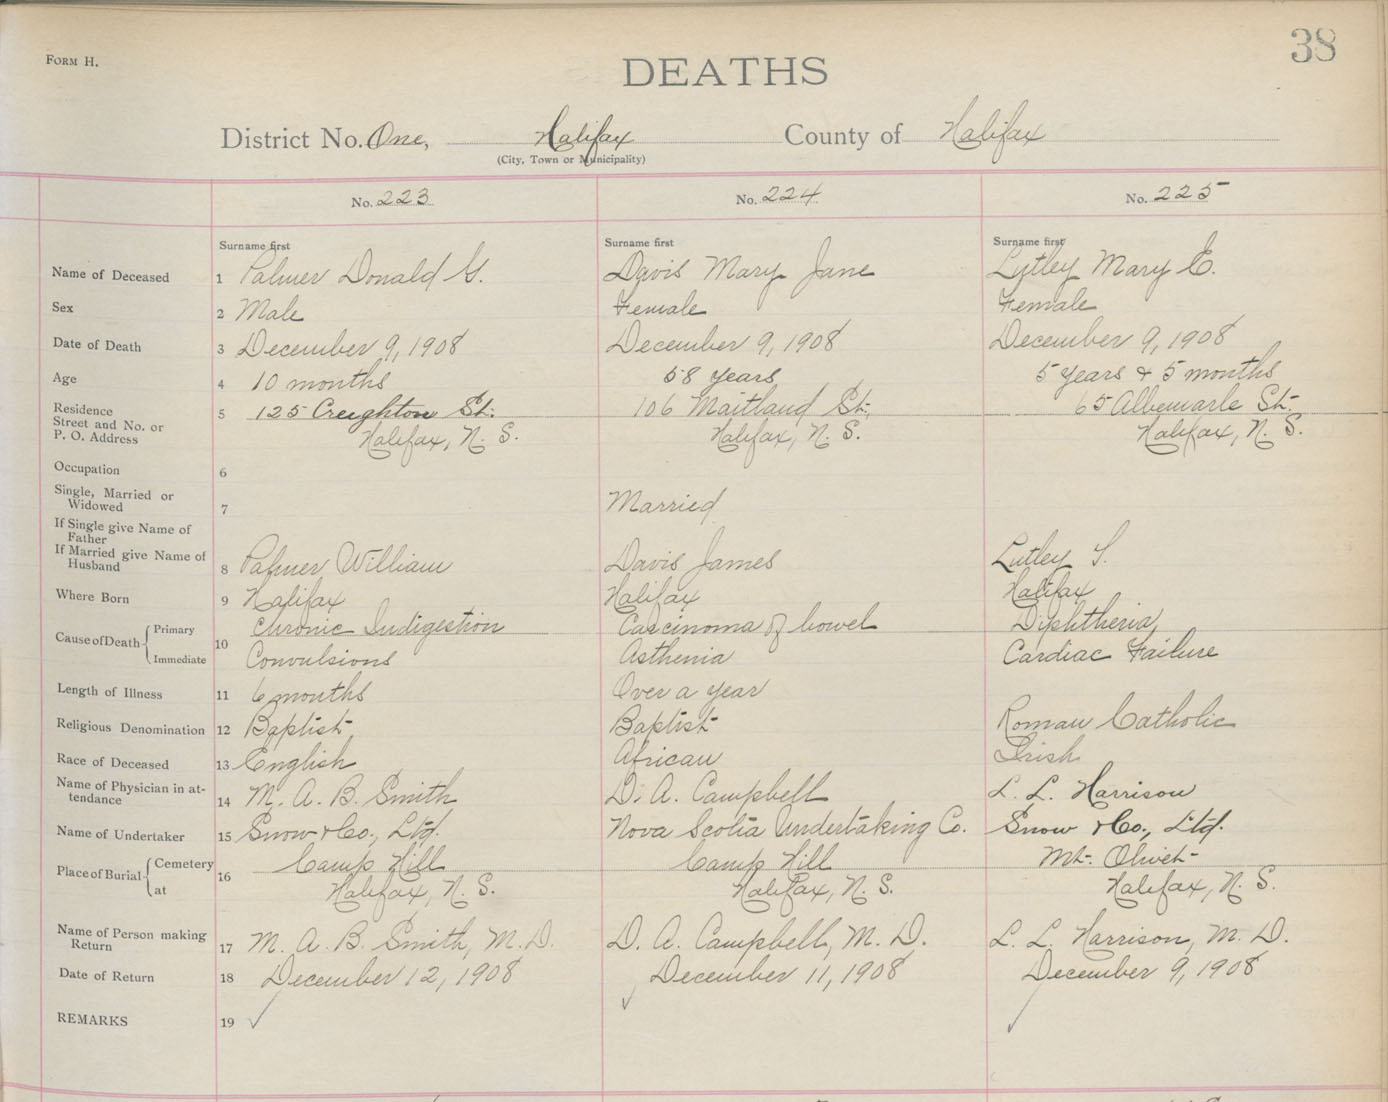 FORM H.
38
DEATHS
District No. One, Halifax County of Halifax
(City, Town or Municipality)
No. 223 No. 224 No. 225
Surname first Surname first Surname first
Name of Deceased 1 Palmer Donald G. Davis Mary Jane Lutley Mary E.
Sex 2 Male Female Female
Date of Death 3 December 9, 1908 December 9, 1908 December 9, 1908
Age 4 10 months 58 years 5 years & 5 months
Residence 5 125 Creighton St. 106 Maitland St. 65 Albemarle St.
Street and No. or
P. O. Address Halifax, N. S. Halifax, N. S. Halifax, N. S.
Occupation 6
Single, Married or
Widowed 7 Married
If Single give Name of
Father
If Married give Name of
Husband 8 Palmer William Davis James Lutley
Where Born 9 Halifax Halifax Halifax
Cause of Death Primary 10 Chronic Indigestion Carcinoma of bowel Diphtheria
Immediate Convulsions Asthenia Cardiac Failure
Length of Illness 11 6 months Over a year
Religious Denomination 12 Baptist Baptist Roman Catholic
Race of Deceased 13 English African Irish
Name of Physician in at-
tendance 14 M. A. B. Smith D. A. Campbell L. L. Harrison
Name of Undertaker 15 Snow & Co., Ltd. Nova Scotia Undertaking Co. Snow & Co., Ltd.
Place of Burial Cemetery 16 Camp Hill Camp Hill Mt. Olivet
at Halifax, N. S. Halifax, N. S. Halifax, N. S.
Name of Person making
Return 17 M. A. B. Smith, M. D. D. A. Campbell, M. D. L. L. Harrison, M. D.
Date of Return 18 December 12, 1908 December 11, 1908 December 9, 1908
REMARKS 19 ✓ ✓ ✓